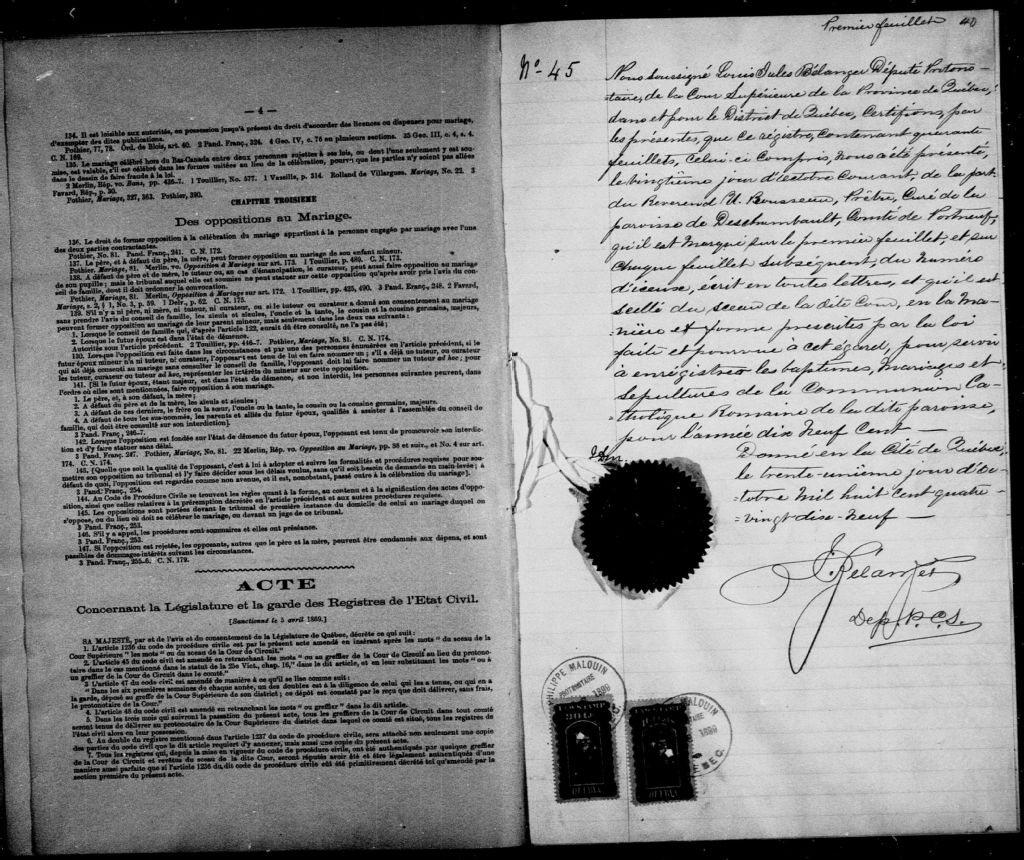 — 4 —
134. Il est loisible aux autorités, en possession jusqu'à présent du droit d'accorder des licences ou dispenses pour mariage,
d'exempter des dites publications.
Pothier, 77, 78. Ord. de Blois, art. 40. 2 Pand. Franç., 324. 4 Geo. IV, c. 75 en plusieurs sections. 35 Geo. III, c. 4, s. 4.
C. N. 169.
135. Le mariage célébré hors du Bas-Canada entre deux personnes sujettes à ses lois, ou dont l'une seulement y est sou-
mise, est valable, s'il est célébré dans les formes usitées au lieu de la célébration, pourvu que les parties n'y soient pas allées
dans le dessin de faire fraude à la loi.
2 Merlin, Rép. vo. Sans, pp. 436-7. 1 Toullier, No. 577. 1 Vazeille, p. 314. Rolland de Villargues. Mariage, No. 22. 3
Favard, Rép., p. 30.
Pothier, Mariage, 327, 363. Pothier, 390.
CHAPITRE TROISIÈME
Des oppositions au Mariage.
136. Le droit de former opposition à la célébration du mariage appartient à la personne engagée par mariage avec l'une
des deux parties contractantes.
Pothier, No. 81. Pand. Franç., 241. C. N. 172.
137. Le père, et à défaut du père, la mère, peut former opposition au mariage de son enfant mineur.
Pothier, Mariage, 81. Merlin, vo. Opposition à Mariage sur art. 173. 1 Toullier, p. 489. C. N. 173.
138. A défaut de père et de mère, le tuteur ou, en cas d'émancipation, le curateur, peut aussi faire opposition au mariage
de son pupille ; mais le tribunal auquel elle est soumise ne peut statuer sur cette opposition qu'après avoir pris l'avis du con-
seil de famille, dont il doit ordonner la convocation.
Pothier, Mariage, 81. Merlin, Opposition à Mariage sur art. 172. 1 Toullier, pp. 425, 490. 3 Pand. Franç., 248. 2 Favard,
Mariage, s. 2, § 1, No. 3, p. 59. 1 Delr., p. 62. C. N. 175.
139. S'il n'y a ni père, ni mère, ni tuteur, ni curateur, ou si le tuteur ou curateur a donné son consentement au mariage
sans prendre l'avis du conseil de famille, les aïeuls et aïeules, l'oncle et la tante, le cousin et la cousine germains, majeurs,
peuvent former opposition au mariage de leur parent mineur, mais seulement dans les deux cas suivants :
1. Lorsque le conseil de famille qui, d'après l'article 122, aurait dû être consulté, ne l'a pas été ;
2. Lorsque le futur époux est dans l'état de démence.
Autorités sous l'article précédent. 2 Toullier, pp. 446-7. Pothier, Mariage, No. 81. C. N. 174.
130. Lorsque l'opposition est faite dans les circonstances et par une des personnes énumérées en l'article précédent, si le
futur époux mineur n'a ni tuteur, ni curateur, l'opposant est tenu de lui en faire nommer un ; s'il a déjà un tuteur, ou curateur
qui ait déjà consenti au mariage sans consulter le conseil de famille, l'opposant doit lui faire nommer un tuteur ad hoc ; pour
les tuteur, curateur ou tuteur ad hoc, représenter les intérêts du mineur sur cette opposition.
141. [Si le futur époux, étant majeur, est dans l'état de démence, et non interdit, les personnes suivantes peuvent, dans
l'ordre où elles sont mentionnées, faire opposition à son mariage.
1. Le père, et, à son défaut, la mère ;
2. A défaut du père et de la mère, les aïeuls et aïeules ;
3. A défaut de ces derniers, le frère ou la sœur, l'oncle ou la tante, le cousin ou la cousine germains, majeurs.
4. A défaut de tous les sus-nommés, les parents et alliés du futur époux, qualifiés à assister à l'assemblée du conseil de
famille, qui doit être consulté sur son interdiction].
3 Pand. Franç., 246-7.
142. Lorsque l'opposition est fondée sur l'état de démence du futur époux, l'opposant est tenu de promouvoir son interdic-
tion et d'y faire statuer sans délai.
3 Pand. Franç. 247. Pothier, Mariage, No, 81. 22 Merlin, vo. Opposition au Mariage, pp. 38 et suiv., et No. 4 sur art.
174. C. N. 174.
143. [Quelle que soit la qualité de l'opposant, c'est à lui à adopter et suivre les formalités et procédures requises pour sou-
mettre son opposition au tribunal et l'y faire décider sous les délais voulus, sans qu'il soit besoin de demande en main-levée ; à
défaut de quoi, l'opposition est regardée comme non avenue, et il est, nonobstant, passé outre à la célébration du mariage].
3 Pand. Franç., 254.
144. Au Code de Procédure Civile se trouvent les règles quant à la forme, au contenu et à la signification des actes d'oppo-
sition, ainsi que celles relatives à la préremption décrétée en l'article précédent et aux autres procédures requises.
145. Les oppositions sont portées devant le tribunal de première instance du domicile de celui au mariage duquel on
s'oppose, ou du lieu où doit se célébrer le mariage, ou devant un juge de ce tribunal.
3 Pand. Franç., 253.
146. S'il y a appel, les procédures sont sommaires et elles ont préséance.
3 Pand. Franç., 253.
147. Si l'opposition est rejetée, les opposants, autres que le père et la mère, peuvent être condamnés aux dépens, et sont
passibles de dommages-intérêts suivant les circonstances.
3 Pand. Franç., 255-6. C. N. 179.
ACTE
Concernant la Législature et la garde des Registres de l'Etat Civil.
[Sanctionné le 5 avril 1869.]
SA MAJESTÉ, par et de l'avis et du consentement de la Législature de Québec, décrète ce qui suit :
1. L'article 1236 du code de procédure civile est par le présent acte amendé en insérant après les mots " du sceau de la
Cour Supérieure " les mots " ou du sceau de la Cour de Circuit."
2. L'article 45 du code civil est amendé en retranchant les mots " ou au greffier de la Cour de Circuit au lieu du protono-
taire dans le cas mentionné dans le statut de la 25e Vict., chap. 16," dans le dit article, et en leur substituant les mots " ou à
un greffier de la Cour de Circuit dans le comté."
3 L'article 47 du code civil est amendé de manière à ce qu'il se lise comme suit :
" Dans les six premières semaines de chaque année, un des doubles est à la diligence de celui qui les a tenus, ou qui en a
la garde, déposé au greffe de la Cour Supérieure de son district ; ce dépôt est constaté par le reçu que doit délivrer, sans frais,
le protonotaire de la Cour."
4. L'article 48 du code civil est amendé en retranchant les mots " ou greffier " dans le dit article.
5. Dans les trois mois qui suivront la passation du présent acte, tous les greffiers de la Cour de Circuit dans tout comté
seront tenus de délivrer au protonotaire de la Cour Supérieure du district dans lequel ce comté est situé, tous les registres de
l'état civil alors en leur possession.
6. Au double du registre mentionné dans l'article 1237 du code de procédure civile, sera attaché non seulement une copie
des parties du code civil que le dit article requiert d'y annexer, mais aussi une copie du présent acte.
7. Tous les registres qui, depuis la mise en vigueur du code de procédure civile, ont été authentiqués par quelque greffier
de la Cour de Circuit et revêtus du sceau de la dite Cour, seront réputés avoir été et être légalement authentiqués d'une
manière aussi parfaite que si l'article 1236 du dit code de procédure civile eût été primitivement décrété tel qu'amendé par la
section première du présent acte.
Premier feuillet 40
No- 45
Nous soussigné Louis Jules Bélanger Député Protono-
-taire, de la Cour Supérieure de la Province de Québec,
dans et pour le District de Québec, Certifions par
les présentes, que ce régistre, Contenant quarante
feuillets, Celui-ci Compris, nous a été présenté,
le vingtième jour d'octobre Courant, de la part
du Reverend U. Rousseau, Prêtre, Curé de la
paroisse de Deschambault, Comté de Portneuf;
qu'il est Marqué sur le premier feuillet, et sur
Chaque feuillet Subséquent, du numéro
d'iceux, écrit en toutes lettres, et qu'il est
scellé du sceau de la dite Cour, en la ma-
-nière et forme prescrites par la loi
faite et pourvue à cet égard, pour servir
à enrégistrer les baptêmes, Mariages et
Sépultures de la Communion Ca-
-tholique Romaine de la dite paroisse,
pour l'année dix neuf Cent —
Donné en la Cité de Québec,
le trente-unième jour d'oc-
-tobre Mil huit Cent quatre
-vingt dix-neuf —
Bélanger
Dep. P.C.S.
PHILIPPE MALOUIN
PROTONOTAIRE
1899
MALOUIN
1899
QUEBEC